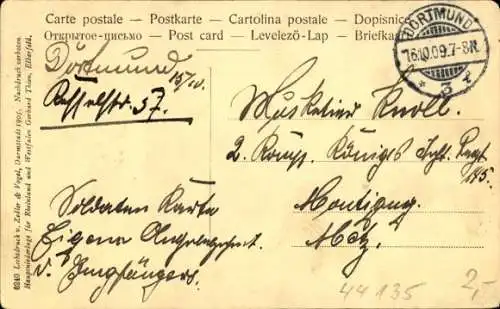 Carte postale — Postkarte — Cartolina postale — Dopisnice
Открытое-письмо — Post card — Levelező-Lap — Briefka
DORTMUND
16.10.09.7-8N.
* 3 r
Dortmund 15/10.
Kesselstr. 37.
Musketier Knoll.
2. Komp. Königs Inft. Regt.
145.
Montigny.
Metz.
Soldaten Karte
Eigene Angelegenheit
d. Empfängers.
44135
2,-
6240 Lichtdruck v. Zedler & Vogel, Darmstadt 1905. Nachdruck verboten.
Hauptniederlage für Rheinland und Westfalen Gerhard Thien, Elberfeld.